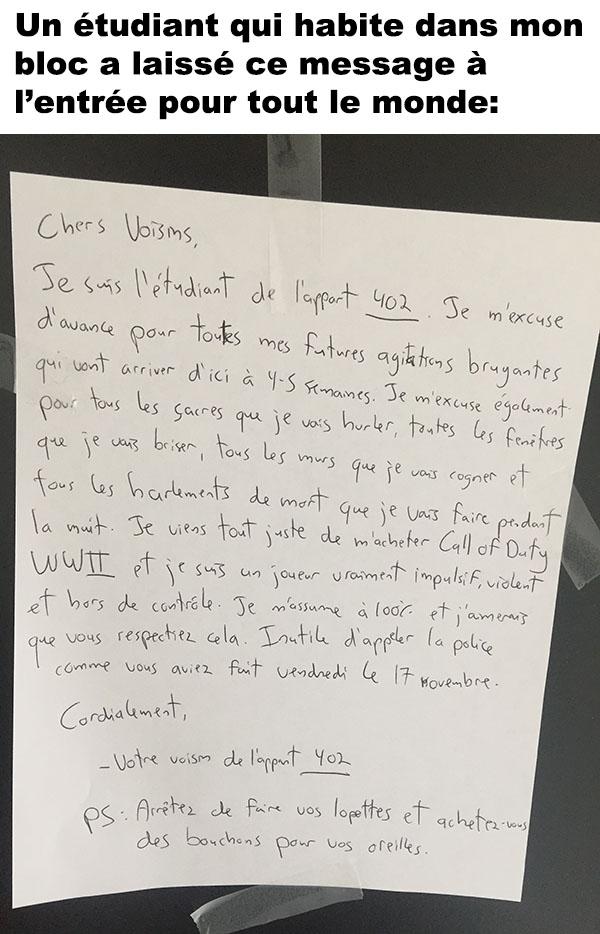 Un étudiant qui habite dans mon
bloc a laissé ce message à
l'entrée pour tout le monde:
Chers Voisins,
Je suis l'étudiant de l'appart 402. Je m'excuse
d'avance pour toutes mes futures agitations bruyantes
qui vont arriver d'ici à 4-5 semaines. Je m'excuse également
pour tous les sacres que je vais hurler, toutes les fenêtres
que je vais briser, tous les murs que je vais cogner et
tous les hurlements de mort que je vais faire pendant
la nuit. Je viens tout juste de m'acheter Call of Duty
WWII et je suis un joueur vraiment impulsif, violent
et hors de contrôle. Je m'assume à 100% et j'aimerais
que vous respectiez cela. Inutile d'appeler la police
comme vous aviez fait vendredi le 17 novembre.
Cordialement,
- Votre voisin de l'appart 402
PS: Arrêtez de faire vos lopettes et achetez-vous
des bouchons pour vos oreilles.